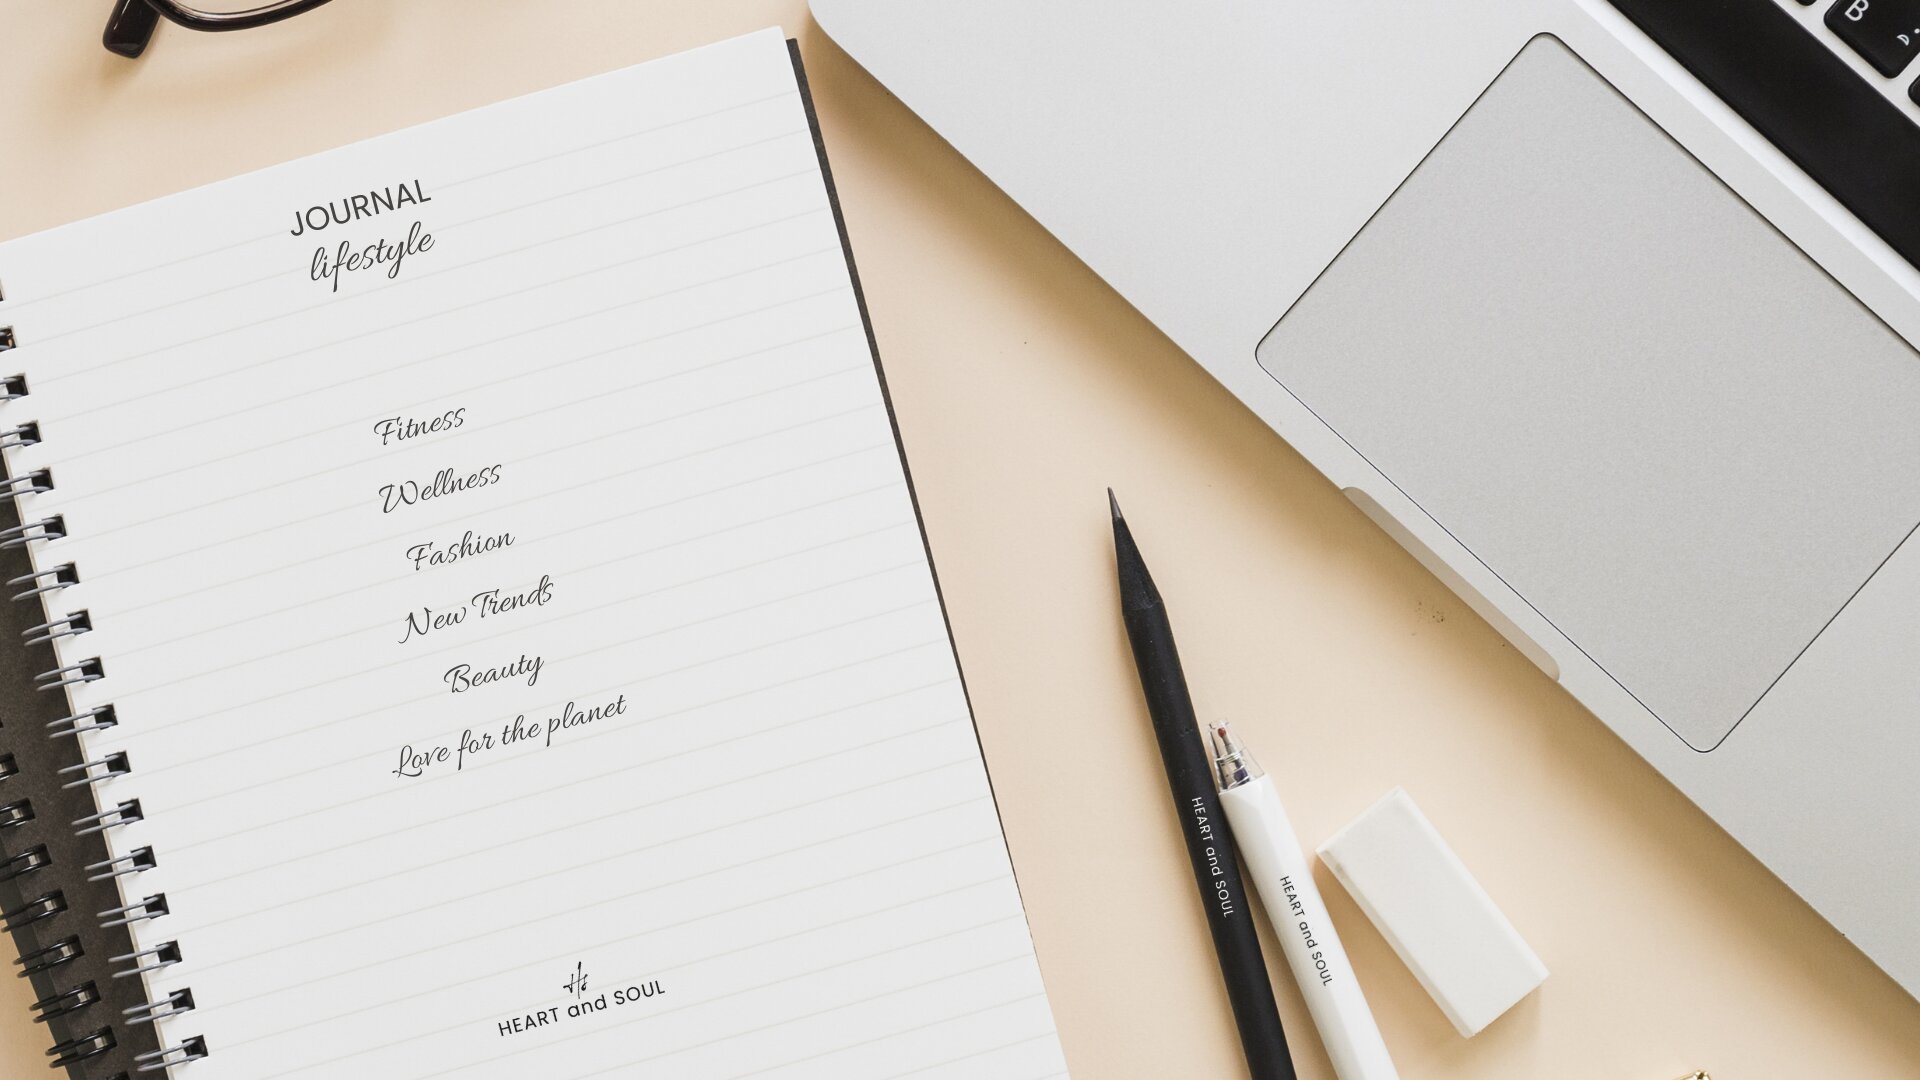 JOURNAL
lifestyle
Fitness
Wellness
Fashion
New Trends
Beauty
Love for the planet
Hs
HEART and SOUL
HEART and SOUL
HEART and SOUL
B